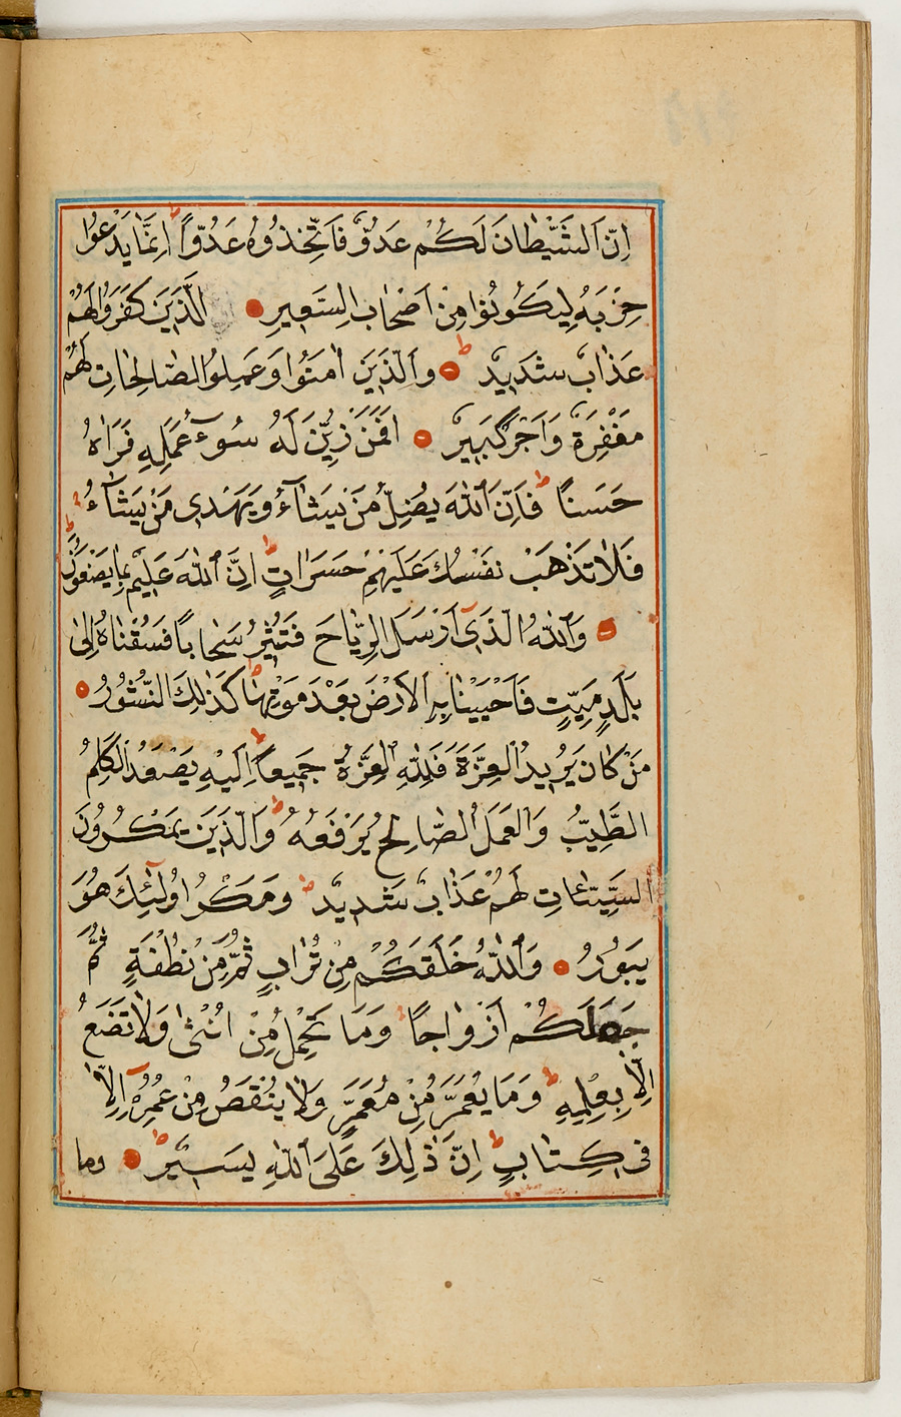 اِنَّ اَلشَّيْطَانَ لَكُمْ عَدُوٌّ فَاَتَّخِذُوهُ عَدُوًّا اِنَّمَا يَدْعُوا
حِزْبَهُ لِيَكُونُوا مِنْ اَصْحَابِ السَّعِيرِ الَّذَيِنَ كَفَرُوا لَهُمْ
عَذَابٌ شَدَيِدٌ وَاَلَّذَيِنَ اٰمَنُوا وَعَمِلُوا الصَّالِحَاتِ لَهُمْ
مَغْفِرَةٌ وَاَجْرٌ كَبَيِرٌ اَفَمَنْ زُيِّنَ لَهُ سُوۤءُ عَمَلِهِ فَرَاٰهُ
حَسَنًا فَاِنَّ اَللّٰهَ يُضِلُّ مَنْ يَشَاۤءُ وَيَهْدِي مَنْ يَشَاۤءُ
فَلَا تَذْهَبْ نَفْسُكَ عَلَيْهِمْ حَسَرَاتٍ اِنَّ اَللّٰهَ عَلِيمٌ بِمَا يَصْنَعُونَ
وَاَللّٰهُ الَّذَيِۤ اَرْسَلَ الرِّيَاحَ فَتُثِيرُ سَحَابًا فَسُقْنَاهُ اِلٰى
بَلَدٍ مَيِّتٍ فَاَحْيَيْنَا بِهِ الْاَرْضَ بَعْدَ مَوْتِهَا كَذٰلِكَ النُّشُورُ
مَنْ كَانَ يُرِيدُ الْعِزَّةَ فَلِلّٰهِ الْعِزَّةُ جَمِيعًا اِلَيْهِ يَصْعَدُ الْكَلِمُ
الطَّيِّبُ وَالْعَمَلُ الصَّالِحُ يَرْفَعُهُ وَاَلَّذَيِنَ يَمْكُرُونَ
السَّيِّئَاتِ لَهُمْ عَذَابٌ شَدِيدٌ وَمَكْرُ اُولٰۤئِكَ هُوَ
يَبُورُ وَاَللّٰهُ خَلَقَكُمْ مِنْ تُرَابٍ ثُمَّ مِنْ نُطْفَةٍ ثُمَّ
جَعَلَكُمْ اَزْوَاجًا وَمَا تَحْمِلُ مِنْ اُنْثٰى وَلَا تَضَعُ
اِلَّا بِعِلْمِهِ وَمَا يُعَمَّرُ مِنْ مُعَمَّرٍ وَلَا يُنْقَصُ مِنْ عُمُرِهِۤ اِلَّا
فِي كِتَابٍ اِنَّ ذٰلِكَ عَلَى اَللّٰهِ يَسَيِرٌ وما